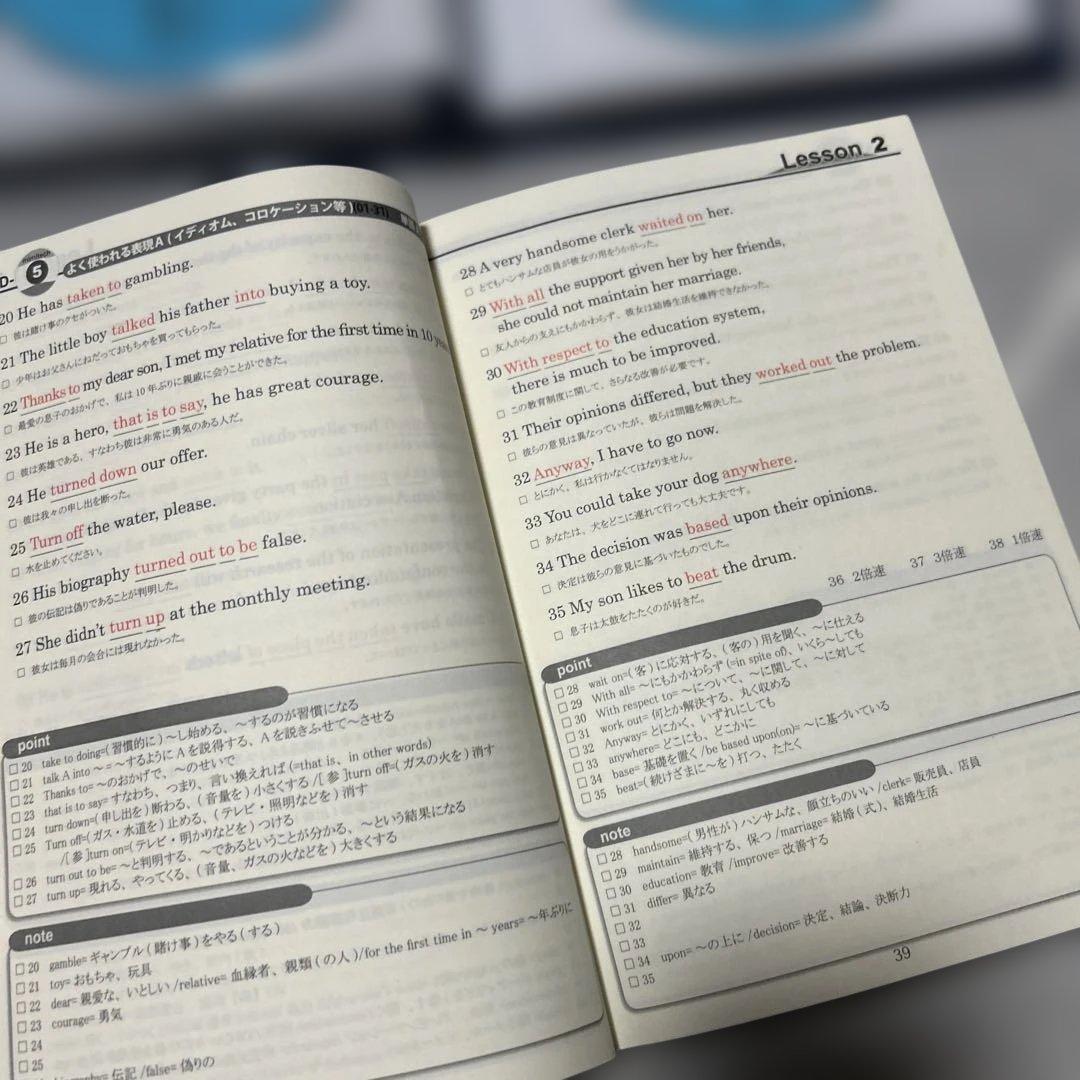 D-5 minitech よく使われる表現A(イディオム、コロケーション等)(01-31)
20 He has taken to gambling.
□ 彼は賭け事のクセがついた。
21 The little boy talked his father into buying a toy.
□ 少年はお父さんにねだっておもちゃを買ってもらった。
22 Thanks to my dear son, I met my relative for the first time in 10
□ 最愛の息子のおかげで、私は10年ぶりに親戚に会うことができた。
23 He is a hero, that is to say, he has great courage.
□ 彼は英雄である、すなわち彼は非常に勇気のある人だ。
24 He turned down our offer.
□ 彼は我々の申し出を断った。
25 Turn off the water, please.
□ 水を止めてください。
26 His biography turned out to be false.
□ 彼の伝記は偽りであることが判明した。
27 She didn't turn up at the monthly meeting.
□ 彼女は毎月の会合には現れなかった。
point
□ 20 take to doing=(習慣的に)〜し始める、〜するのが習慣になる
□ 21 talk A into 〜=〜するようにAを説得する、Aを説きふせて〜させる
□ 22 Thanks to=〜のおかげで、〜のせいで
□ 23 that is to say=すなわち、つまり、言い換えれば(=that is、in other words)
□ 24 turn down=(申し出を)断わる、(音量を)小さくする/[参]turn off=(ガスの火を)消す
□ 25 Turn off=(ガス・水道を)止める、(テレビ・照明などを)消す
/[参]turn on=(テレビ・明かりなどを)つける
□ 26 turn out to be=〜と判明する、〜であるということが分かる、〜という結果になる
□ 27 turn up=現れる、やってくる、(音量、ガスの火などを)大きくする
note
□ 20 gamble=ギャンブル(賭け事)をやる(する)
□ 21 toy=おもちゃ、玩具
□ 22 dear=親愛な、いとしい/relative=血縁者、親類(の人)/for the first time in 〜 years=〜年ぶりに
□ 23 courage=勇気
□ 24
□ 25
伝記/false=偽りの
Lesson 2
28 A very handsome clerk waited on her.
□ とてもハンサムな店員が彼女の用をうかがった。
29 With all the support given her by her friends,
she could not maintain her marriage.
□ 友人からの支えにもかかわらず、彼女は結婚生活を維持できなかった。
30 With respect to the education system,
there is much to be improved.
□ この教育制度に関して、さらなる改善が必要です。
31 Their opinions differed, but they worked out the problem.
□ 彼らの意見は異なっていたが、彼らは問題を解決した。
32 Anyway, I have to go now.
□ とにかく、私は行かなくてはなりません。
33 You could take your dog anywhere.
□ あなたは、犬をどこに連れて行っても大丈夫です。
34 The decision was based upon their opinions.
□ 決定は彼らの意見に基づいたものでした。
35 My son likes to beat the drum.
□ 息子は太鼓をたたくのが好きだ。
36 2倍速 37 3倍速 38 1倍速
point
□ 28 wait on=(客)に応対する、(客の)用を聞く、〜に仕える
□ 29 With all=〜にもかかわらず(=in spite of)、いくら〜しても
□ 30 With respect to=〜について、〜に関して、〜に対して
□ 31 work out=何とか解決する、丸く収める
□ 32 Anyway=とにかく、いずれにしても
□ 33 anywhere=どこにも、どこかに
□ 34 base=基礎を置く/be based upon(on)=〜に基づいている
□ 35 beat=(続けざまに〜を)打つ、たたく
note
□ 28 handsome=(男性が)ハンサムな、顔立ちのいい/clerk=販売員、店員
□ 29 maintain=維持する、保つ/marriage=結婚(式)、結婚生活
□ 30 education=教育/improve=改善する
□ 31 differ=異なる
□ 32
□ 33
□ 34 upon=〜の上に/decision=決定、結論、決断力
□ 35
39